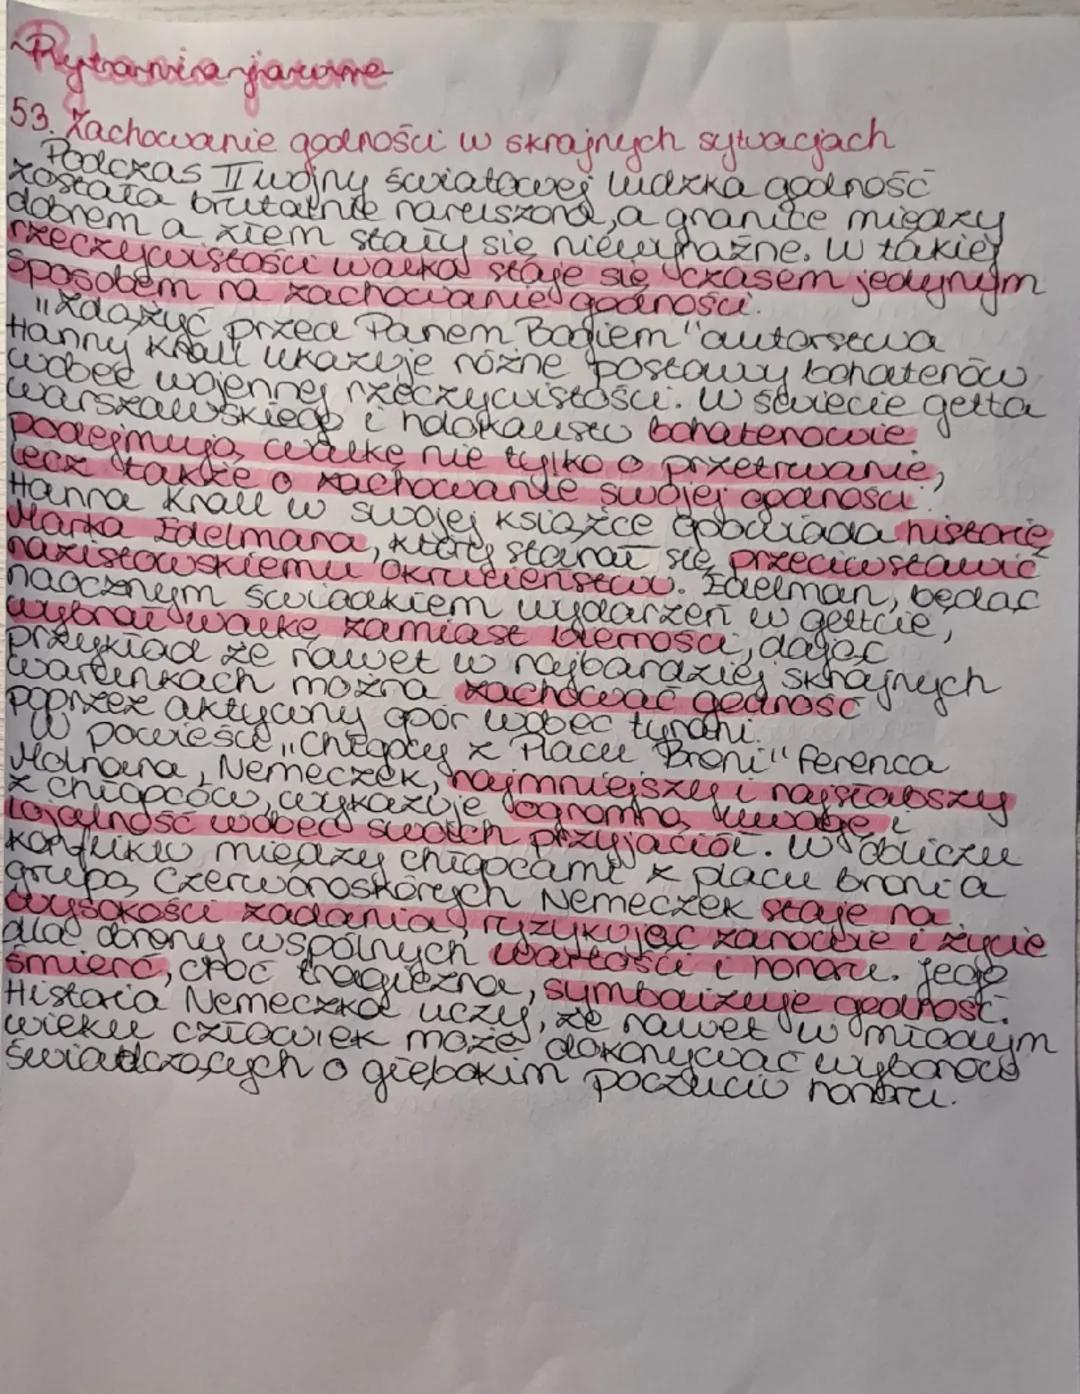 Pytania jawne
53. Zachowanie godności w skrajnych sytuacjach
Podczas II wojny światowej ludzka godność
została brutalnie naruszona, a granice między
dobrem a złem stały się niewyraźne. W takiej
rzeczywistości walka staje się czasem jedynym
sposobem na zachowanie godności.
"Zdążyć przed Panem Bogiem" autorstwa
Hanny Krall ukazuje różne postawy bohaterów
wobec wojennej rzeczywistości. W świecie getta
warszawskiego i holokaustu bohaterowie
podejmują walkę nie tylko o przetrwanie,
lecz także o zachowanie swojej godności.
Hanna Krall w swojej książce opowiada historię
Marka Edelmana, który starał się przeciwstawić
nazistowskiemu okrucieństwu. Edelman, będąc
naocznym świadkiem wydarzeń w getcie,
wybrał walkę zamiast bierności, dając
przykład że nawet w najbardziej skrajnych
warunkach można zachować godność
poprzez aktywny opór wobec tyranii.
W powieści „Chłopcy z Placu Broni" Ferenca
Molnara, Nemeczek, najmniejszy i najsłabszy
z chłopców, wykazuje ogromną uwagę i
lojalność wobec swoich przyjaciół. W obliczu
konfliktu między chłopcami z placu broni a
grupą Czerwonoskórych Nemeczek staje na
wysokości zadania, ryzykując zdrowie i życie
dla obrony wspólnych wartości i honoru. Jego
śmierć, choć tragiczna, symbolizuje godność.
Historia Nemeczka uczy, że nawet w młodym
wieku człowiek może dokonywać wyborów
świadczących o głębokim poczuciu honoru.